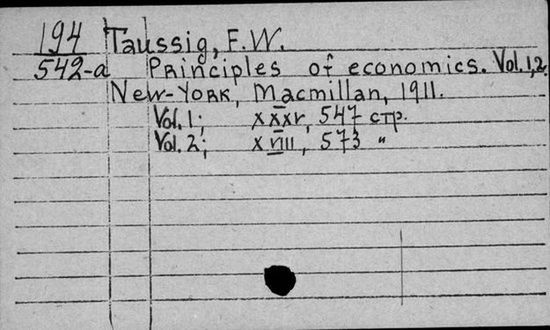 194 Taussig, F.W.
542-a Principles of economics. Vol. 1,2
New-York, Macmillan, 1911.
Vol. 1; xxxv, 547 стр.
Vol. 2; xviii, 573 "